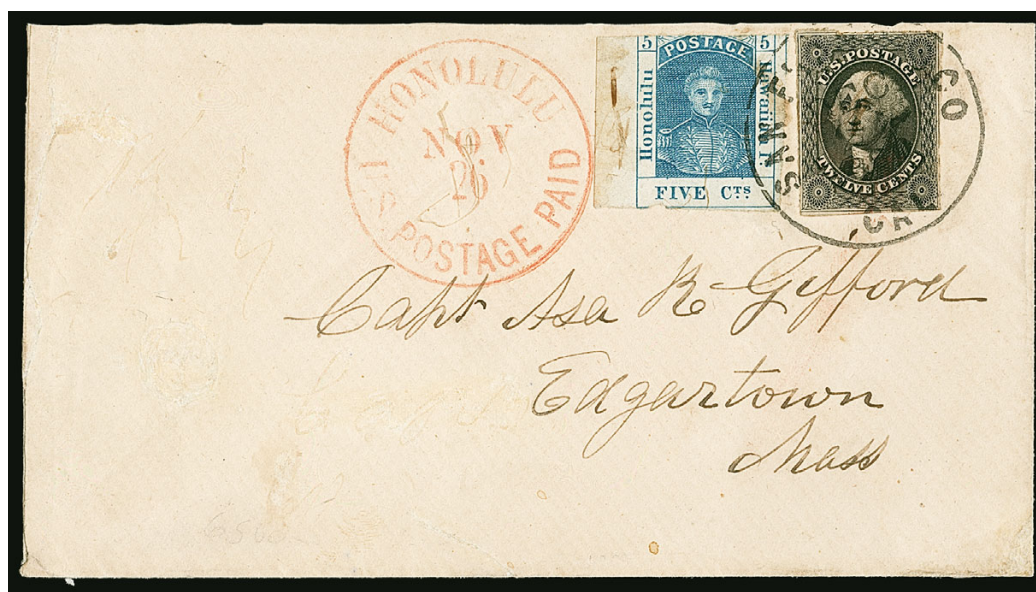 HONOLULU
NOV
26
U.S. POSTAGE PAID
5 POSTAGE 5
Honolulu
Hawaiian Is.
FIVE CTS.
U.S. POSTAGE
TWELVE CENTS
SAN FRANCISCO
CAL
Capt Asa R Gifford
Edgartown
Mass